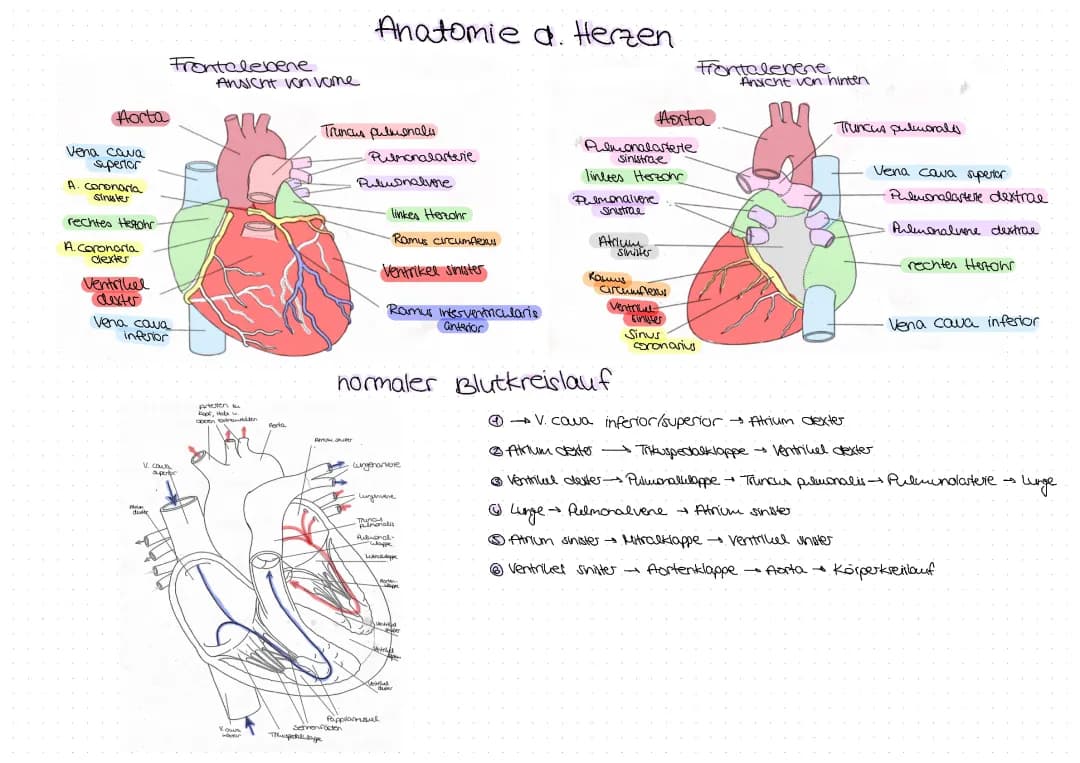 Anatomie d. Herzen
Frontalebene
Ansicht von vorne
Aorta
Vena cava
superior
A. coronaria
sinister
rechtes Herzohr
A. coronaria
dexter
Ventrikel
dexter
Vena cava
inferior
Truncus pulmonalis
Pulmonalarterie
Pulmonalvene
linkes Herzohr
Ramus circumflexus
Ventrikel sinister
Ramus interventricularis
anterior
Frontalebene
Ansicht von hinten
Aorta
Pulmonalarterie
sinistrae
linkes Herzohr
Pulmonalvene
sinistrae
Atrium
sinister
Ramus
circumflexus
Ventrikel
sinister
Sinus
coronarius
Truncus pulmonalis
Vena cava superior
Pulmonalarterie dextrae
Pulmonalvene dextrae
rechtes Herzohr
Vena cava inferior
normaler Blutkreislauf
Arterien zu
Kopf, Hals u.
oberen Extremitäten
Aorta
Atrium sinister
V. cava
superior
Atrium
dexter
Lungenarterie
Lungenvene
Truncus
pulmonalis
Pulmonal-
klappe
Mitralklappe
Aorten-
klappe
Ventrikel
sinister
Ventrikel
dexter
Papillarmuskel
Sehnenfäden
Trikuspedalklappe
V. cava
inferior
① → V. cava inferior/superior → Atrium dexter
② Atrium dexter → Trikuspedalklappe → Ventrikel dexter
③ Ventrikel dexter → Pulmonalklappe → Truncus pulmonalis → Pulmonalarterie → Lunge
④ Lunge → Pulmonalvene → Atrium sinister
⑤ Atrium sinister → Mitralklappe → Ventrikel sinister
⑥ Ventrikel sinister → Aortenklappe → Aorta → Körperkreislauf